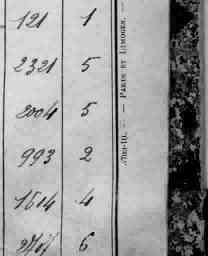 121 1
2321 5
2004 5
993 2
1614 4
6
PARIS ET LIMOGES.